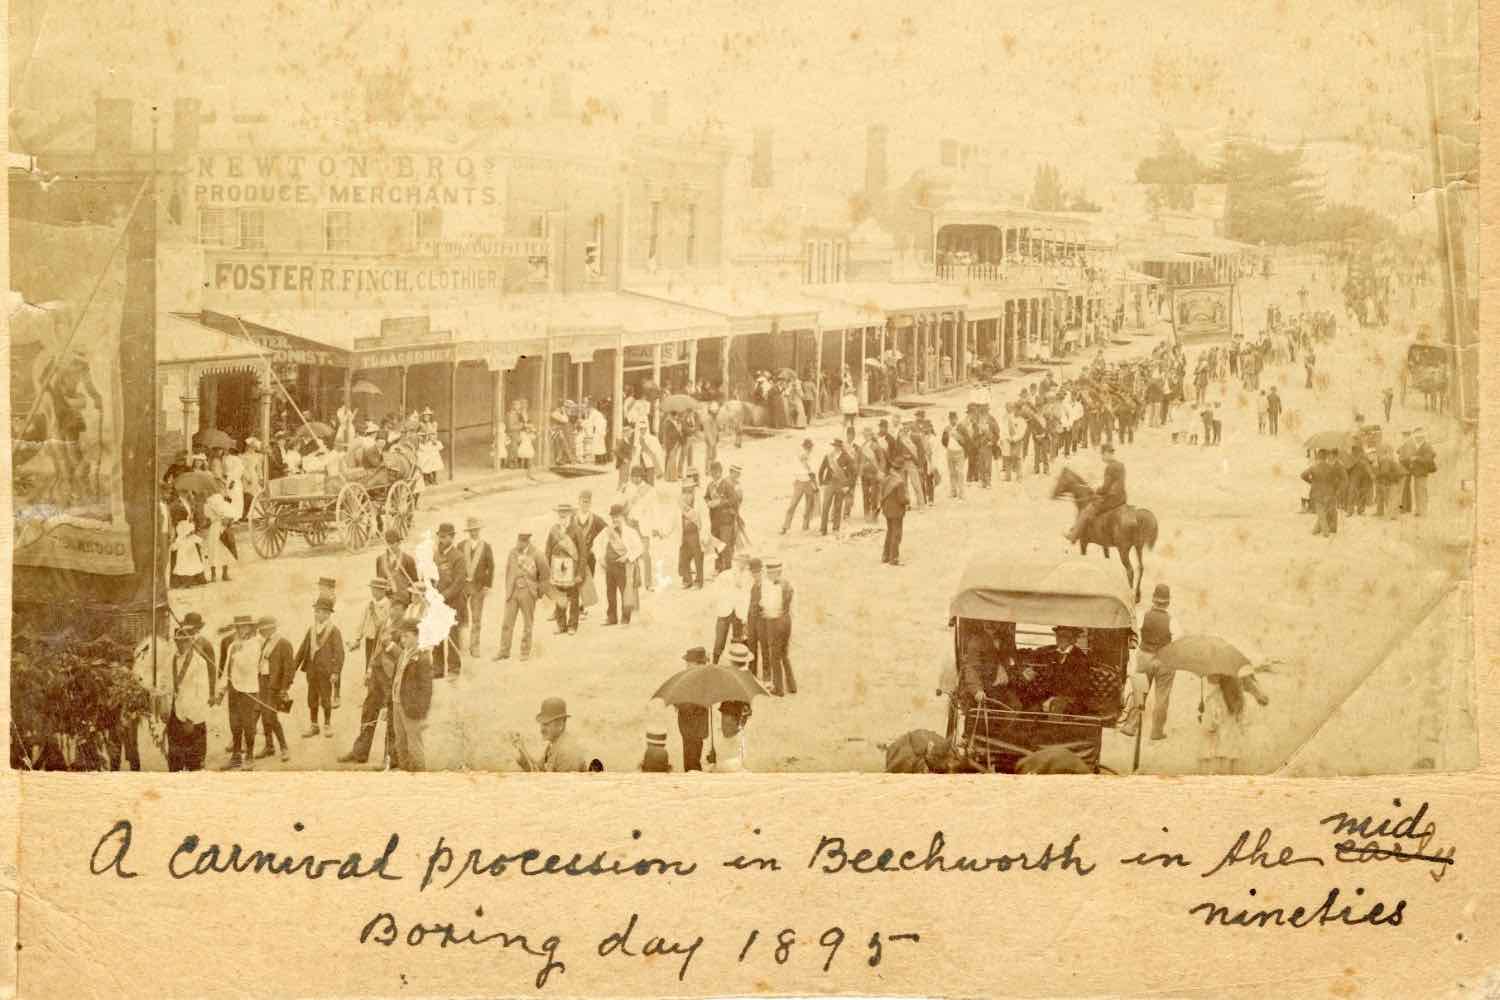 NEWTON BROS
PRODUCE, MERCHANTS.
OUTFITTER
FOSTER R. FINCH, CLOTHIER
ONIST
A carnival procession in Beechworth in the mid early
nineties
Boxing day 1895